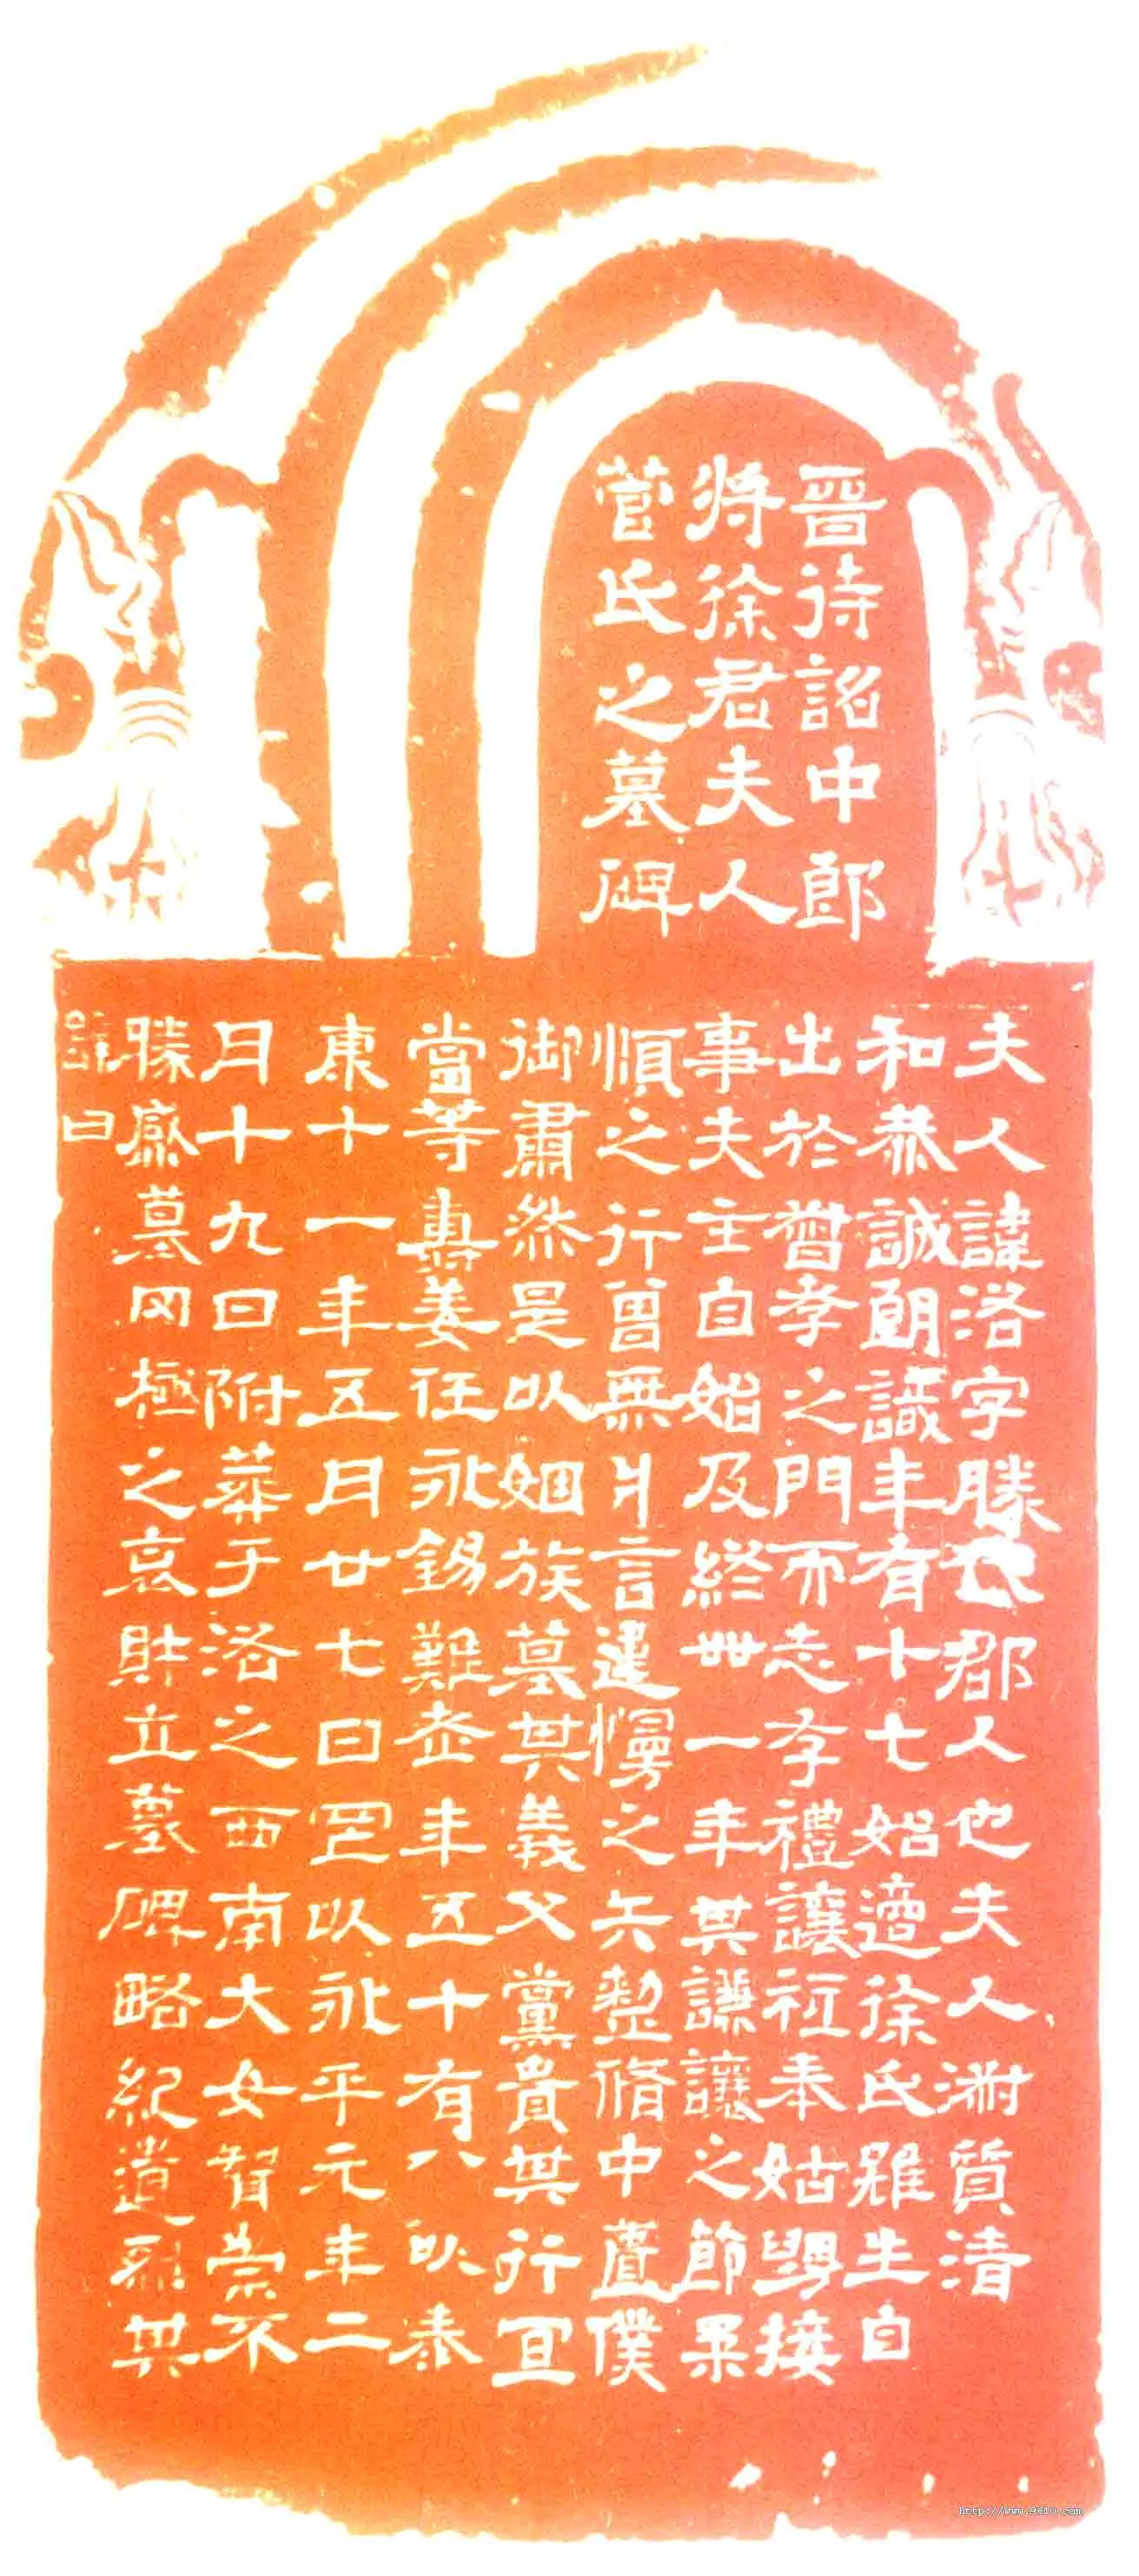 晉待詔中郎
將徐君夫人
菅氏之墓碑
夫人諱洛字勝代郡人也夫人淑質清
和恭誠朗識年有十七始適徐氏雖生自
出於督孝之門而志存禮讓祗奉姑舅接
事夫主自始及終卅一年其謙讓之節柔
順之行曾無片言違慢之矢整脩中匱僕
御肅然是以姻族慕其義父黨貴其行宜
當等壽姜任永錫難老年五十有八以泰
康十一年五月廿七日以永平元年二
月十九日附葬于洛之西南大女智崇不
勝感慕罔極之哀財立墓碑略紀遺烈其
辭曰
http://www.9610.com